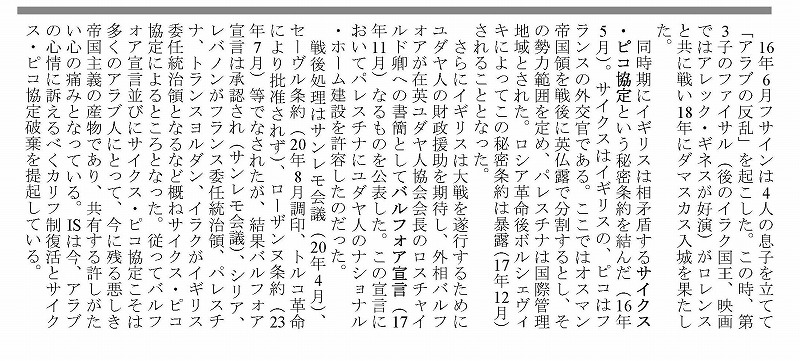 16年6月フサインは4人の息子を立てて
「アラブの反乱」を起こした。この時、第
3子のファイサル（後のイラク国王、映画
ではアレック・ギネスが好演）がロレンス
と共に戦い18年にダマスカス入城を果たし
た。
同時期にイギリスは相矛盾するサイクス
・ピコ協定という秘密条約を結んだ（16年
5月）。サイクスはイギリスの、ピコはフ
ランスの外交官である。ここではオスマン
帝国領を戦後に英仏露で分割するとし、そ
の勢力範囲を定め、パレスチナは国際管理
地域とされた。ロシア革命後ボルシェヴィ
キによってこの秘密条約は暴露（17年12月）
されることとなった。
さらにイギリスは大戦を遂行するために
ユダヤ人の財政援助を期待し、外相バルフ
ォアが在英ユダヤ人協会会長のロスチャイ
ルド卿への書簡としてバルフォア宣言（17
年11月）なるものを公表した。この宣言に
おいてパレスチナにユダヤ人のナショナル
・ホーム建設を許容したのだった。
戦後処理はサンレモ会議（20年4月）、
セーヴル条約（20年8月調印、トルコ革命
により批准されず）、ローザンヌ条約（23
年7月）等でなされたが、結果バルフォア
宣言は承認され（サンレモ会議）、シリア、
レバノンがフランス委任統治領、パレスチ
ナ、トランスヨルダン、イラクがイギリス
委任統治領となるなど概ねサイクス・ピコ
協定によるところとなった。従ってバルフ
ォア宣言並びにサイクス・ピコ協定こそは
多くのアラブ人にとって、今に残る悪しき
帝国主義の産物であり、共有する許しがた
い心の痛みとなっている。ISは今、アラブ
の心情に訴えるべくカリフ制復活とサイク
ス・ピコ協定破棄を提起している。